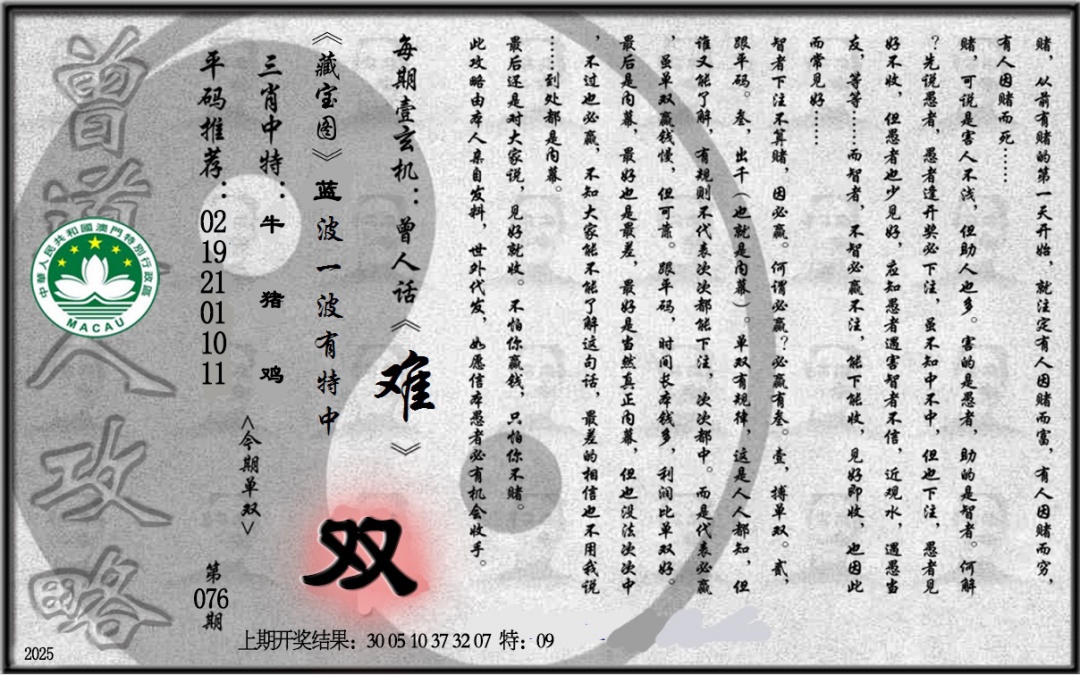 赌，从前有赌的第一天开始，就注定有人因赌而富，有人因赌而穷，
有人因赌而死……
赌，可说是害人不浅，但助人也多。害的是愚者，助的是智者。何解
？先说愚者，愚者逢开奖必下注，虽不知中不中，但也下注，愚者见
好不收，但愚者也少见好，应知愚者遇害智者不信，近观水，遇愚当
友，等等……而智者，不智必赢不注，能下能收，见好即收，也因此
而常见好……
智者下注不算赌，因必赢。何谓必赢？必赢有叁。壹，搏单双。贰，
跟平码。叁，出千（也就是内幕）。单双有规律，这是人人都知，但
谁又能了解，有规则不代表次次都能下注，次次都中。而是代表必赢
，虽单双赢钱慢，但可靠。跟平码，时间长本钱多，利润比单双好。
最后是内幕，最好也是最差，最好是当然真正内幕，但也没法次次中
，不过也必赢，不知大家能不能了解这句话，最差的相信也不用我说
……到处都是内幕。
最后还是对大家说，见好就收。不怕你赢钱，只怕你不赌。
此攻略由本人亲自发料，世外代发，如愿信本愚者必有机会收手。
每期壹玄机：曾人话《难》
《藏宝图》蓝波一波有特中
双
三肖中特：牛 猪 鸡
<今期单双>
平码推荐：02 19 21 01 10 11
第076期
曾道人攻略
中華人民共和國澳門特別行政區
MACAU
上期开奖结果：30 05 10 37 32 07 特：09
2025